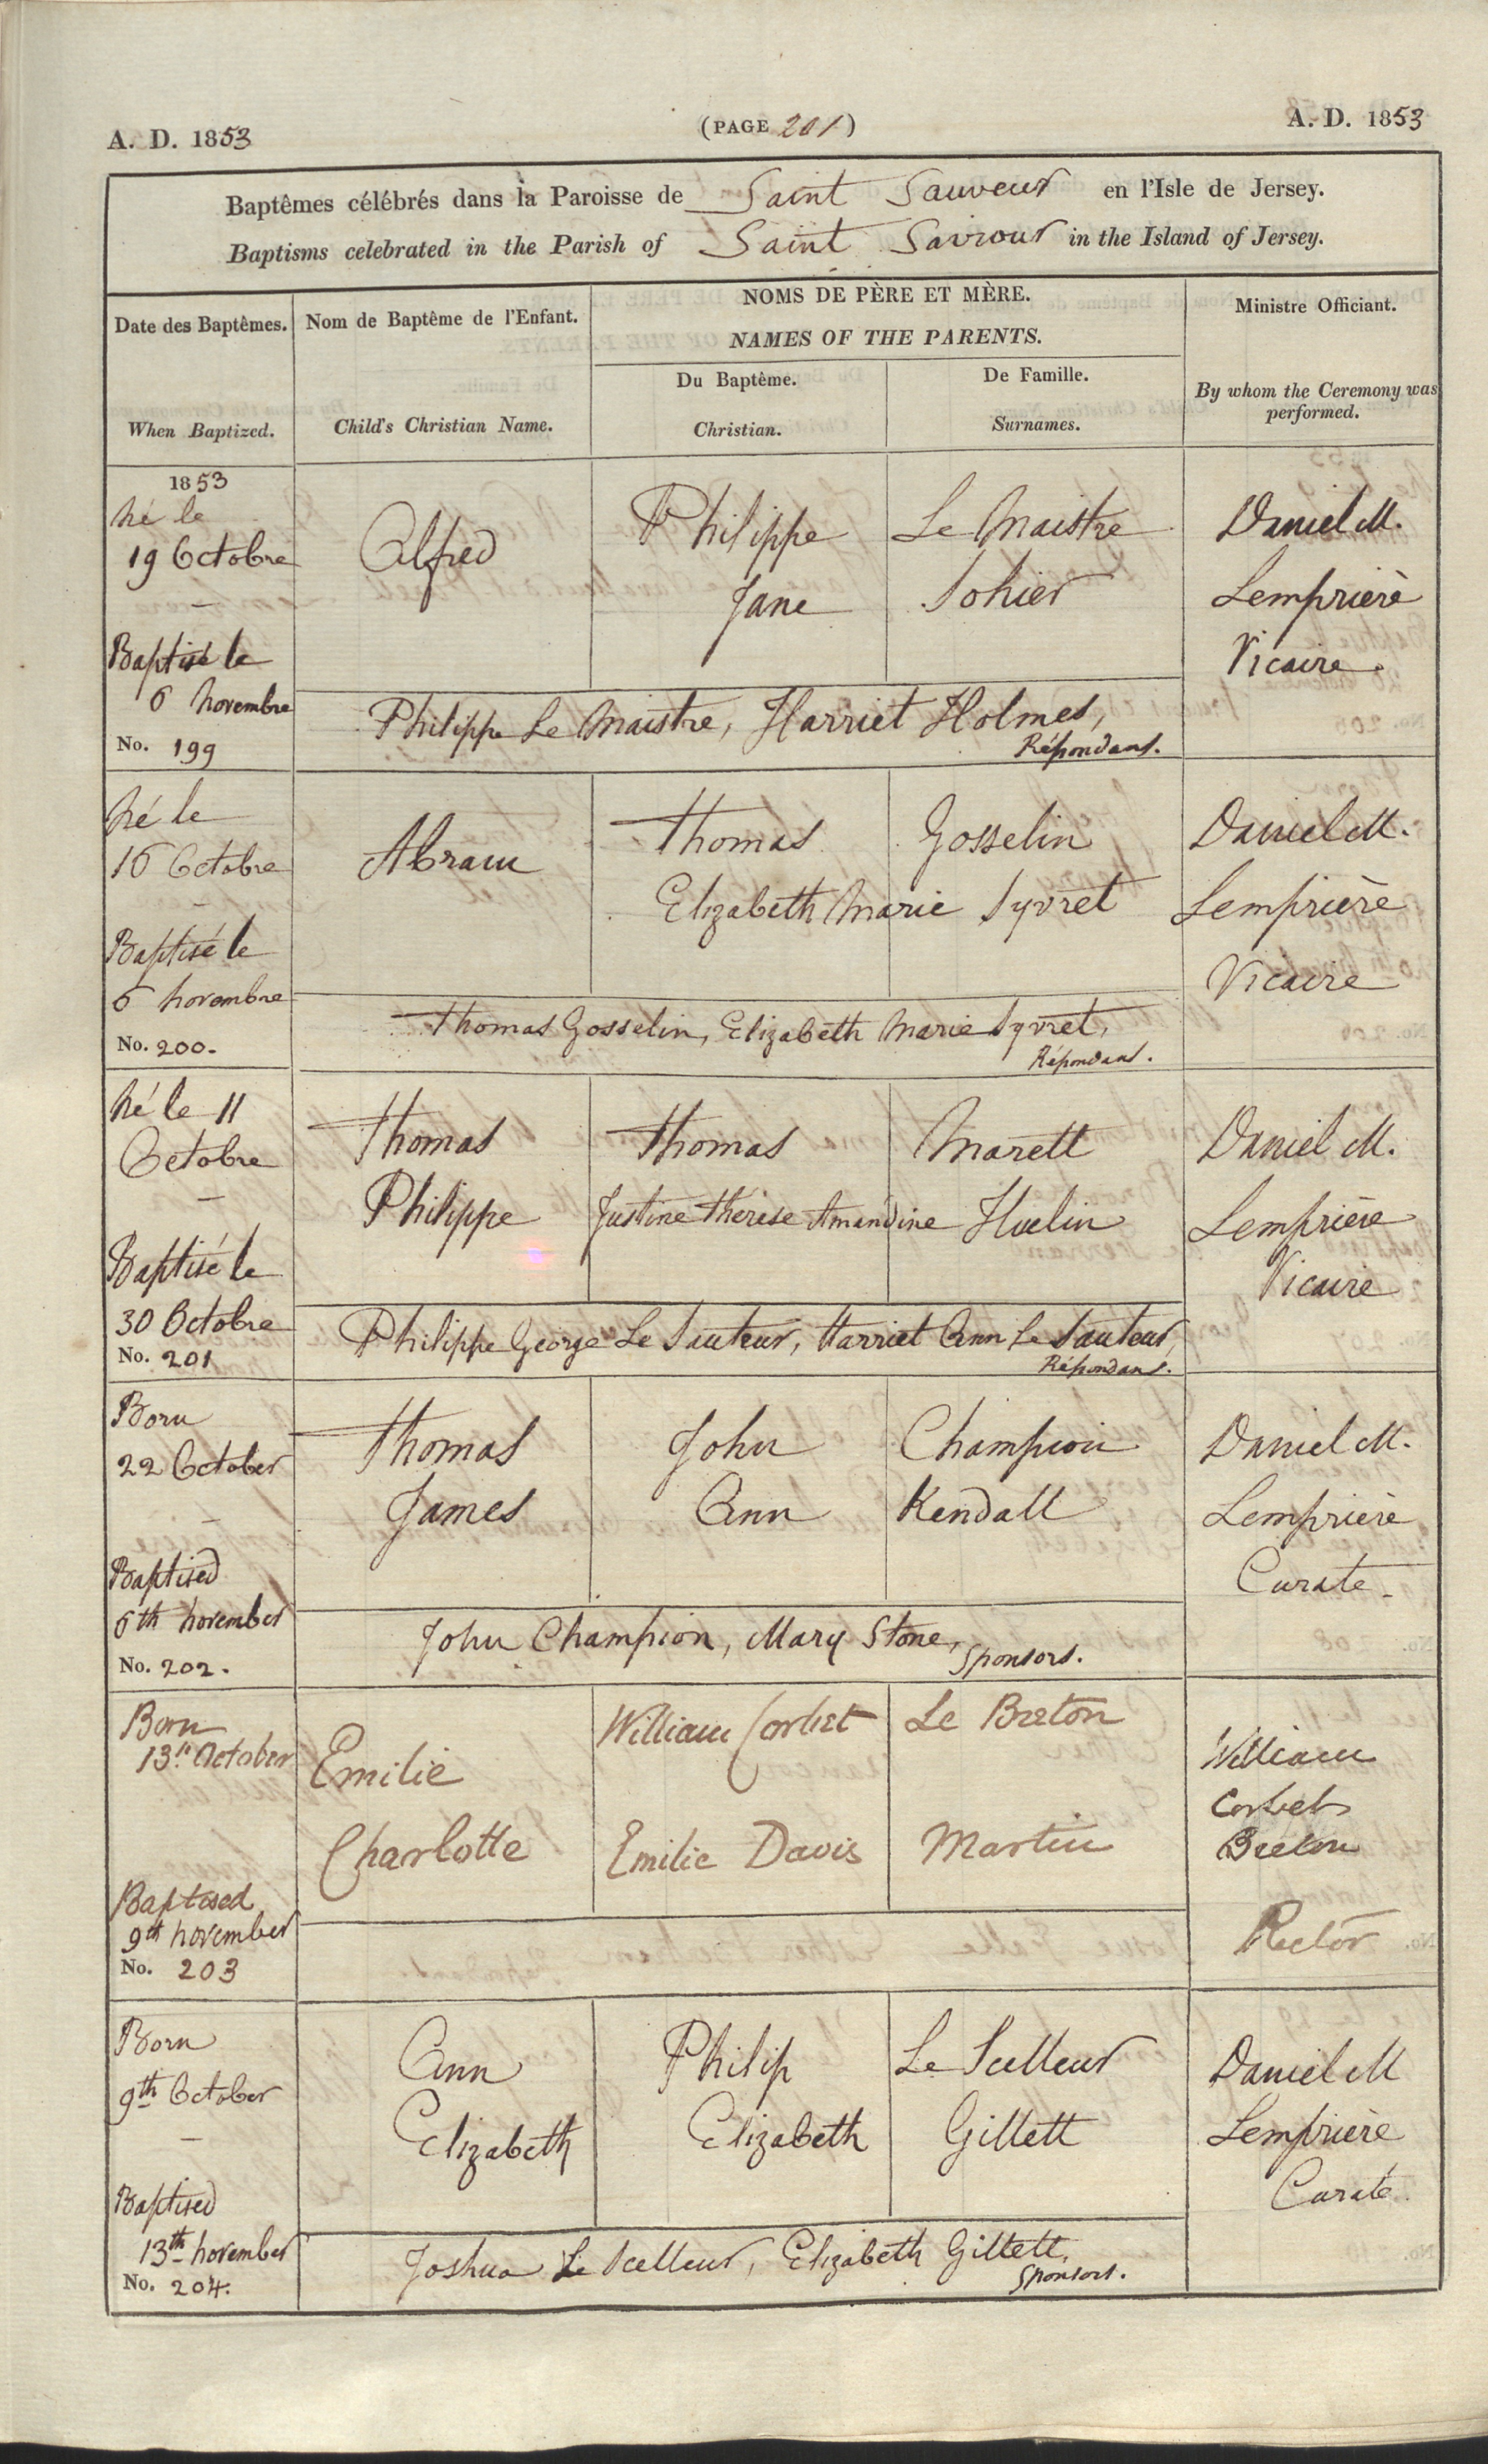 A. D. 1853
(PAGE 201)
A. D. 1853
Baptêmes célébrés dans la Paroisse de Saint Sauveur en l'Isle de Jersey.
Baptisms celebrated in the Parish of Saint Saviour in the Island of Jersey.
Date des Baptêmes.
When Baptized.
Nom de Baptême de l'Enfant.
Child's Christian Name.
NOMS DE PÈRE ET MÈRE.
NAMES OF THE PARENTS.
Du Baptême.
Christian.
De Famille.
Surnames.
Ministre Officiant.
By whom the Ceremony was
performed.
1853
Né le
19 Octobre
—
Baptisé le
6 Novembre
No. 199
Alfred
Philippe Le Maistre
Jane Sohier
Daniel M.
Lemprière
Vicaire.
Philippe Le Maistre, Harriet Holmes,
Répondans.
Né le
16 Octobre
—
Baptisé le
6 Novembre
No. 200.
Abram
Thomas Gosselin
Elizabeth Marie Syvret
Daniel M.
Lemprière
Vicaire
Thomas Gosselin, Elizabeth Marie Syvret,
Répondans.
Né le 11
Octobre
—
Baptisé le
30 Octobre
No. 201
Thomas
Philippe
Thomas Marett
Justine Thérèse Amandine Huelin
Daniel M.
Lemprière
Vicaire
Philippe George Le Sauteur, Harriet Ann Le Sauteur,
Répondans.
Born
22 October
—
Baptised
6th November
No. 202.
Thomas
James
John Champion
Ann Kendall
Daniel M.
Lemprière
Curate.
John Champion, Mary Stone,
Sponsors.
Born
13th October
Baptised
9th November
No. 203
Emilie
Charlotte
William Corbet Le Breton
Emilie Davis Martin
William
Corbet
Breton
Rector
Born
9th October
—
Baptised
13th November
No. 204.
Ann
Elizabeth
Philip Le Selleur
Elizabeth Gillett
Daniel M
Lemprière
Curate.
Joshua Le Selleur, Elizabeth Gillett,
Sponsors.